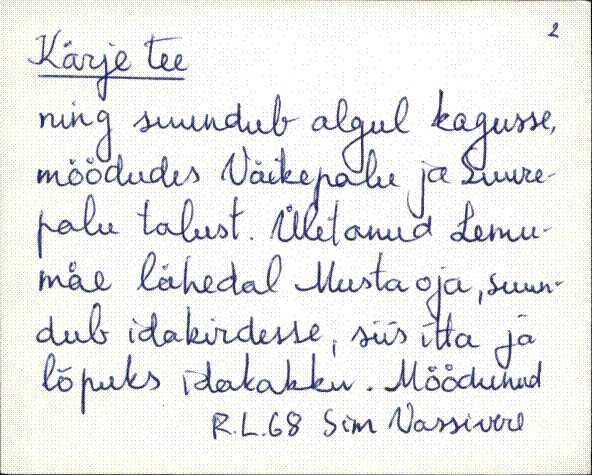 2
Kärje tee
ning suundub algul kagusse,
möödudes Väikepalu ja Suure-
palu talust. Ületanud Lemu-
mäe lähedal Musta oja, suun-
dub idakirdesse, siis itta ja
lõpuks idakakku. Möödunud
R.L.68 Sim Vassivere